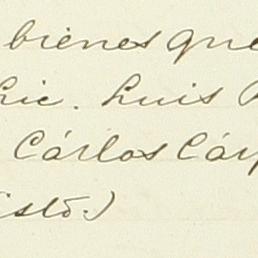 bienes que
Lic. Luis
Cárlos Cár
istó.)